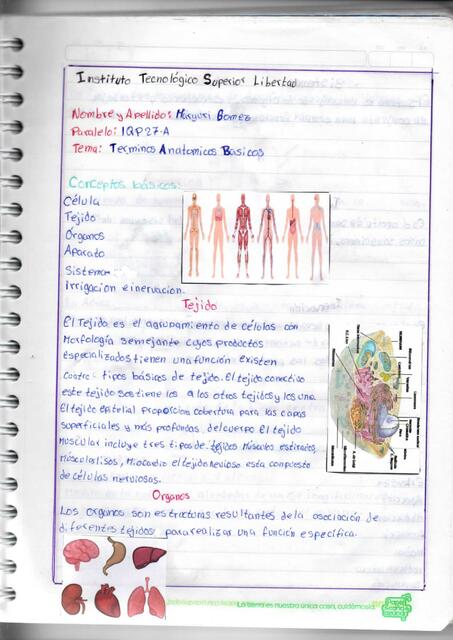 Instituto Tecnológico Superior Libertad
Nombre y Apellido: Mayuri Gomez
Paralelo: 1QP27-A
Tema: Terminos Anatomicos Basicos
Conceptos básicos:
Célula
Tejido
Órganos
Aparato
Sistema
Irrigacion e inervacion.
Tejido
El Tejido es el agrupamiento de células con
Morfología semejante cuyos productos
especializados tienen una función existen
cuatro tipos básicos de tejido. El tejido conectivo
este tejido sostiene a los otros tejidos y los une
El tejido epitelial proporciona cobertura para las capas
superficiales y más profundas del cuerpo El tejido
Muscular incluye tres tipos de tejidos Músculo estriados,
Músculos lisos, Miocardio el tejido nervioso esta compuesto
de células nerviosas.
Organos
Los organos son estructuras resultantes de la asociación de
diferentes tejidos para realizar una función específica.
La tierra es nuestra única casa, cuidémosla